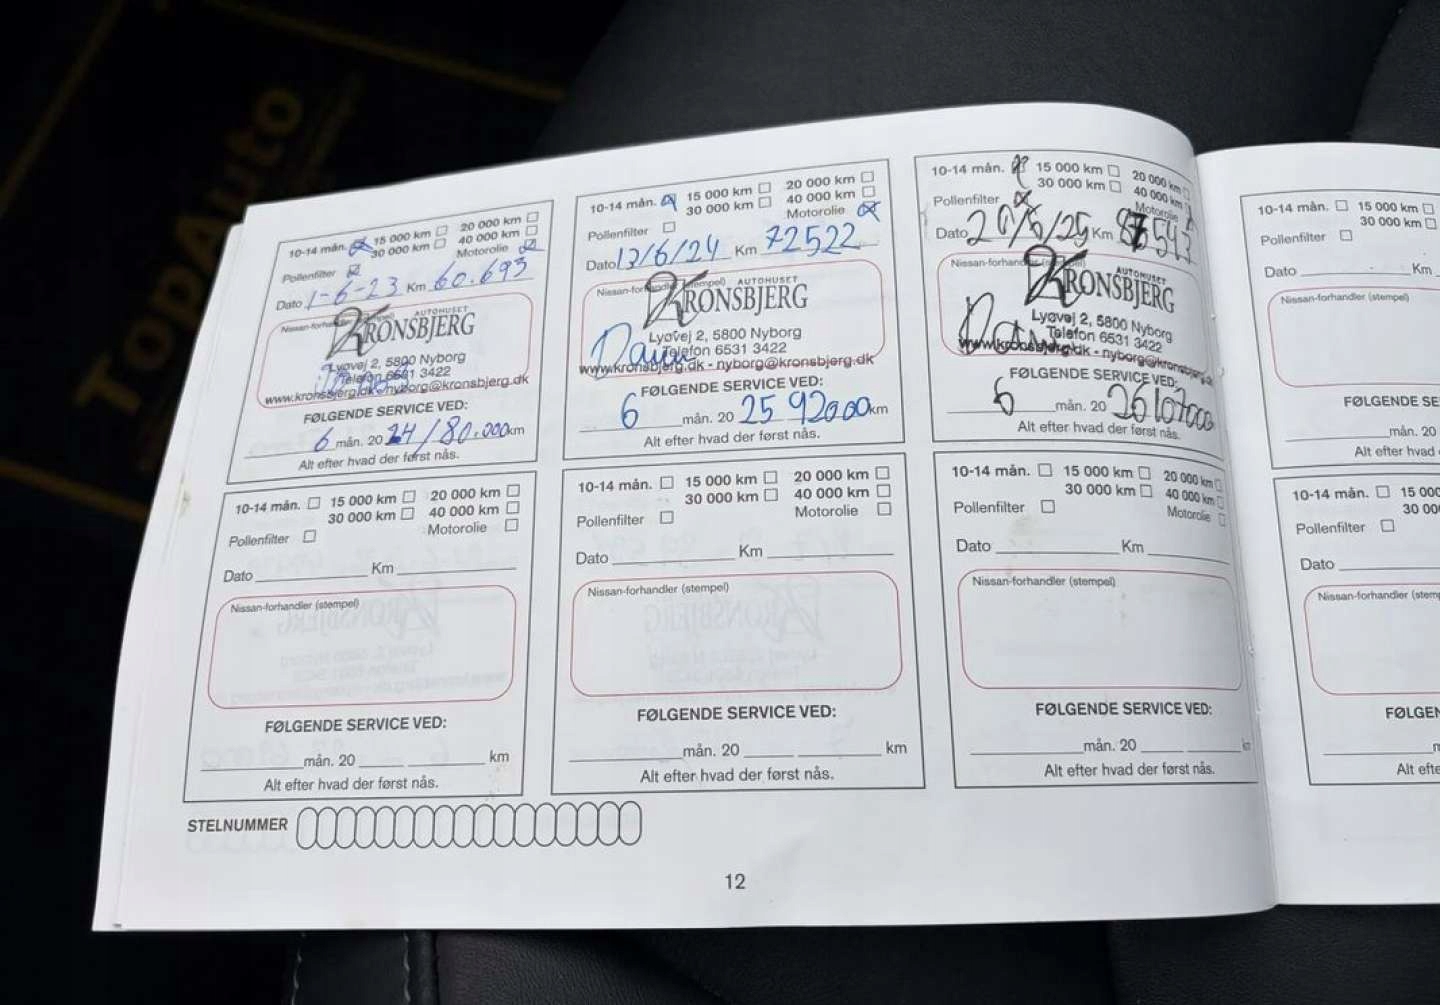 TopAuto
10-14 mån. 15 000 km 20 000 km
30 000 km 40 000 km
Pollenfilter Motorolie
Dato 1-6-23 Km 60.693
Nissan-forhandler (stempel)
AUTOHUSET
KRONSBJERG
Lyøvej 2, 5800 Nyborg
Telefon 6531 3422
www.kronsbjerg.dk - nyborg@kronsbjerg.dk
FØLGENDE SERVICE VED:
6 mån. 20 24 / 80.000 km
Alt efter hvad der først nås.
10-14 mån. 15 000 km 20 000 km
30 000 km 40 000 km
Pollenfilter Motorolie
Dato 13/6/24 Km 72522
Nissan-forhandler (stempel)
AUTOHUSET
KRONSBJERG
Lyøvej 2, 5800 Nyborg
Telefon 6531 3422
www.kronsbjerg.dk - nyborg@kronsbjerg.dk
FØLGENDE SERVICE VED:
6 mån. 20 25 92000 km
Alt efter hvad der først nås.
10-14 mån. 15 000 km 20 000 km
30 000 km 40 000 km
Pollenfilter Motorolie
Dato 20/6/25 Km
Nissan-forhandler (stempel)
AUTOHUSET
KRONSBJERG
Lyøvej 2, 5800 Nyborg
Telefon 6531 3422
www.kronsbjerg.dk - nyborg@kronsbjerg.dk
FØLGENDE SERVICE VED:
6 mån. 20 26 107000
Alt efter hvad der først nås.
10-14 mån. 15 000 km
30 000 km
Pollenfilter
Dato Km
Nissan-forhandler (stempel)
FØLGENDE SE
mån. 20
Alt efter hvad
10-14 mån. 15 000 km 20 000 km
30 000 km 40 000 km
Pollenfilter Motorolie
Dato Km
Nissan-forhandler (stempel)
FØLGENDE SERVICE VED:
mån. 20 km
Alt efter hvad der først nås.
10-14 mån. 15 000 km 20 000 km
30 000 km 40 000 km
Pollenfilter Motorolie
Dato Km
Nissan-forhandler (stempel)
FØLGENDE SERVICE VED:
mån. 20 km
Alt efter hvad der først nås.
10-14 mån. 15 000 km 20 000 km
30 000 km 40 000 km
Pollenfilter Motorolie
Dato Km
Nissan-forhandler (stempel)
FØLGENDE SERVICE VED:
mån. 20 km
Alt efter hvad der først nås.
10-14 mån. 15 000
30 00
Pollenfilter
Dato
Nissan-forhandler (stemp
FØLGEN
Alt efte
STELNUMMER
12